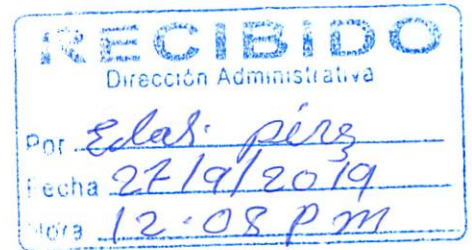 RECIBIDO
Dirección Administrativa
Por pérez
Fecha 27/9/2019
Hora 12:08 Pm